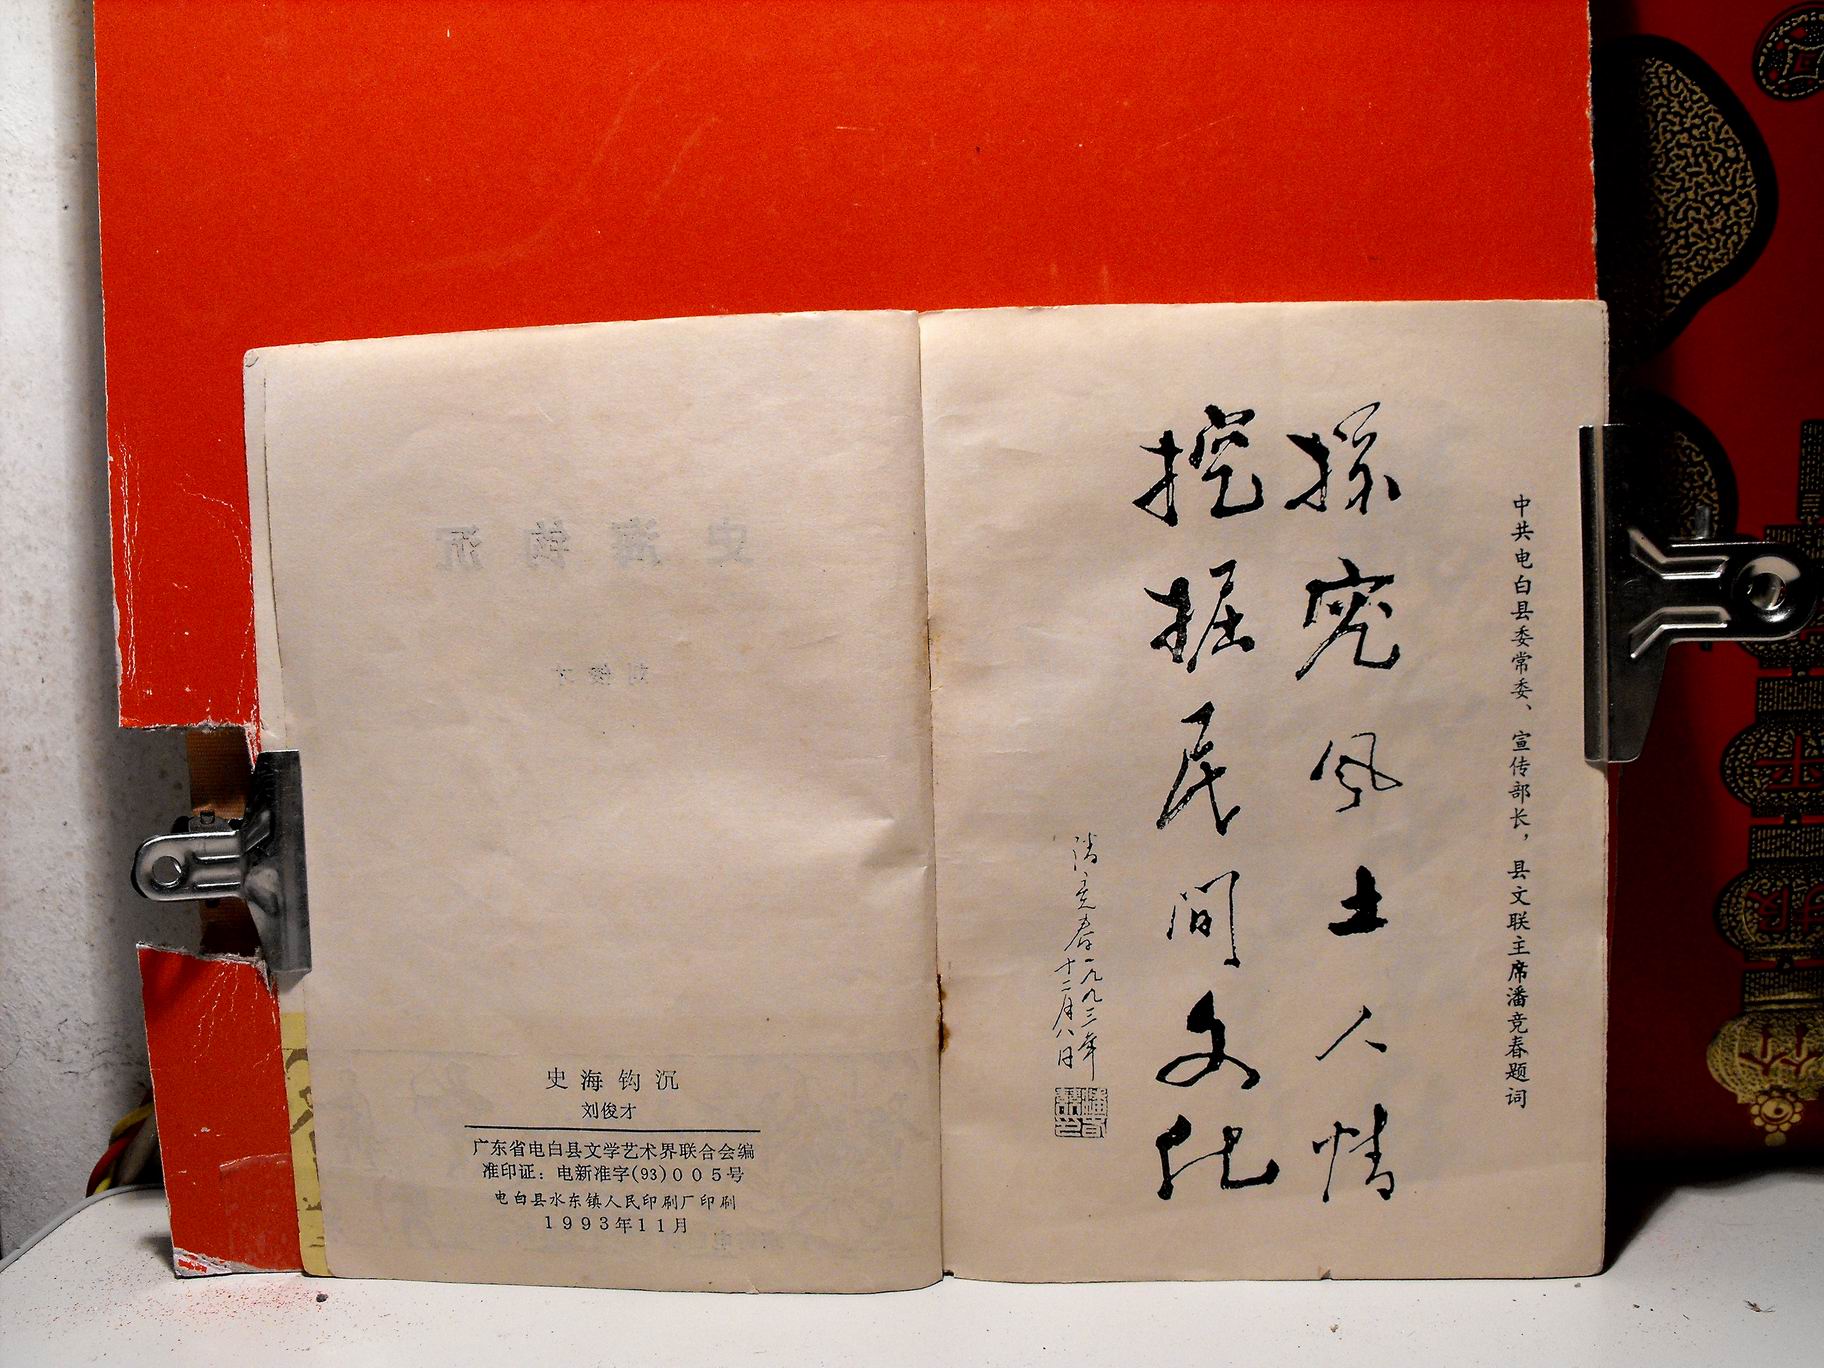 史海钩沉
刘俊才
史海钩沉
刘俊才
广东省电白县文学艺术界联合会编
准印证：电新准字(93)005号
电白县水东镇人民印刷厂印刷
1993年11月
中共电白县委常委、宣传部长，县文联主席潘竞春题词
探究风土人情
挖掘民间文化
潘竞春一九九三年
十二月八日